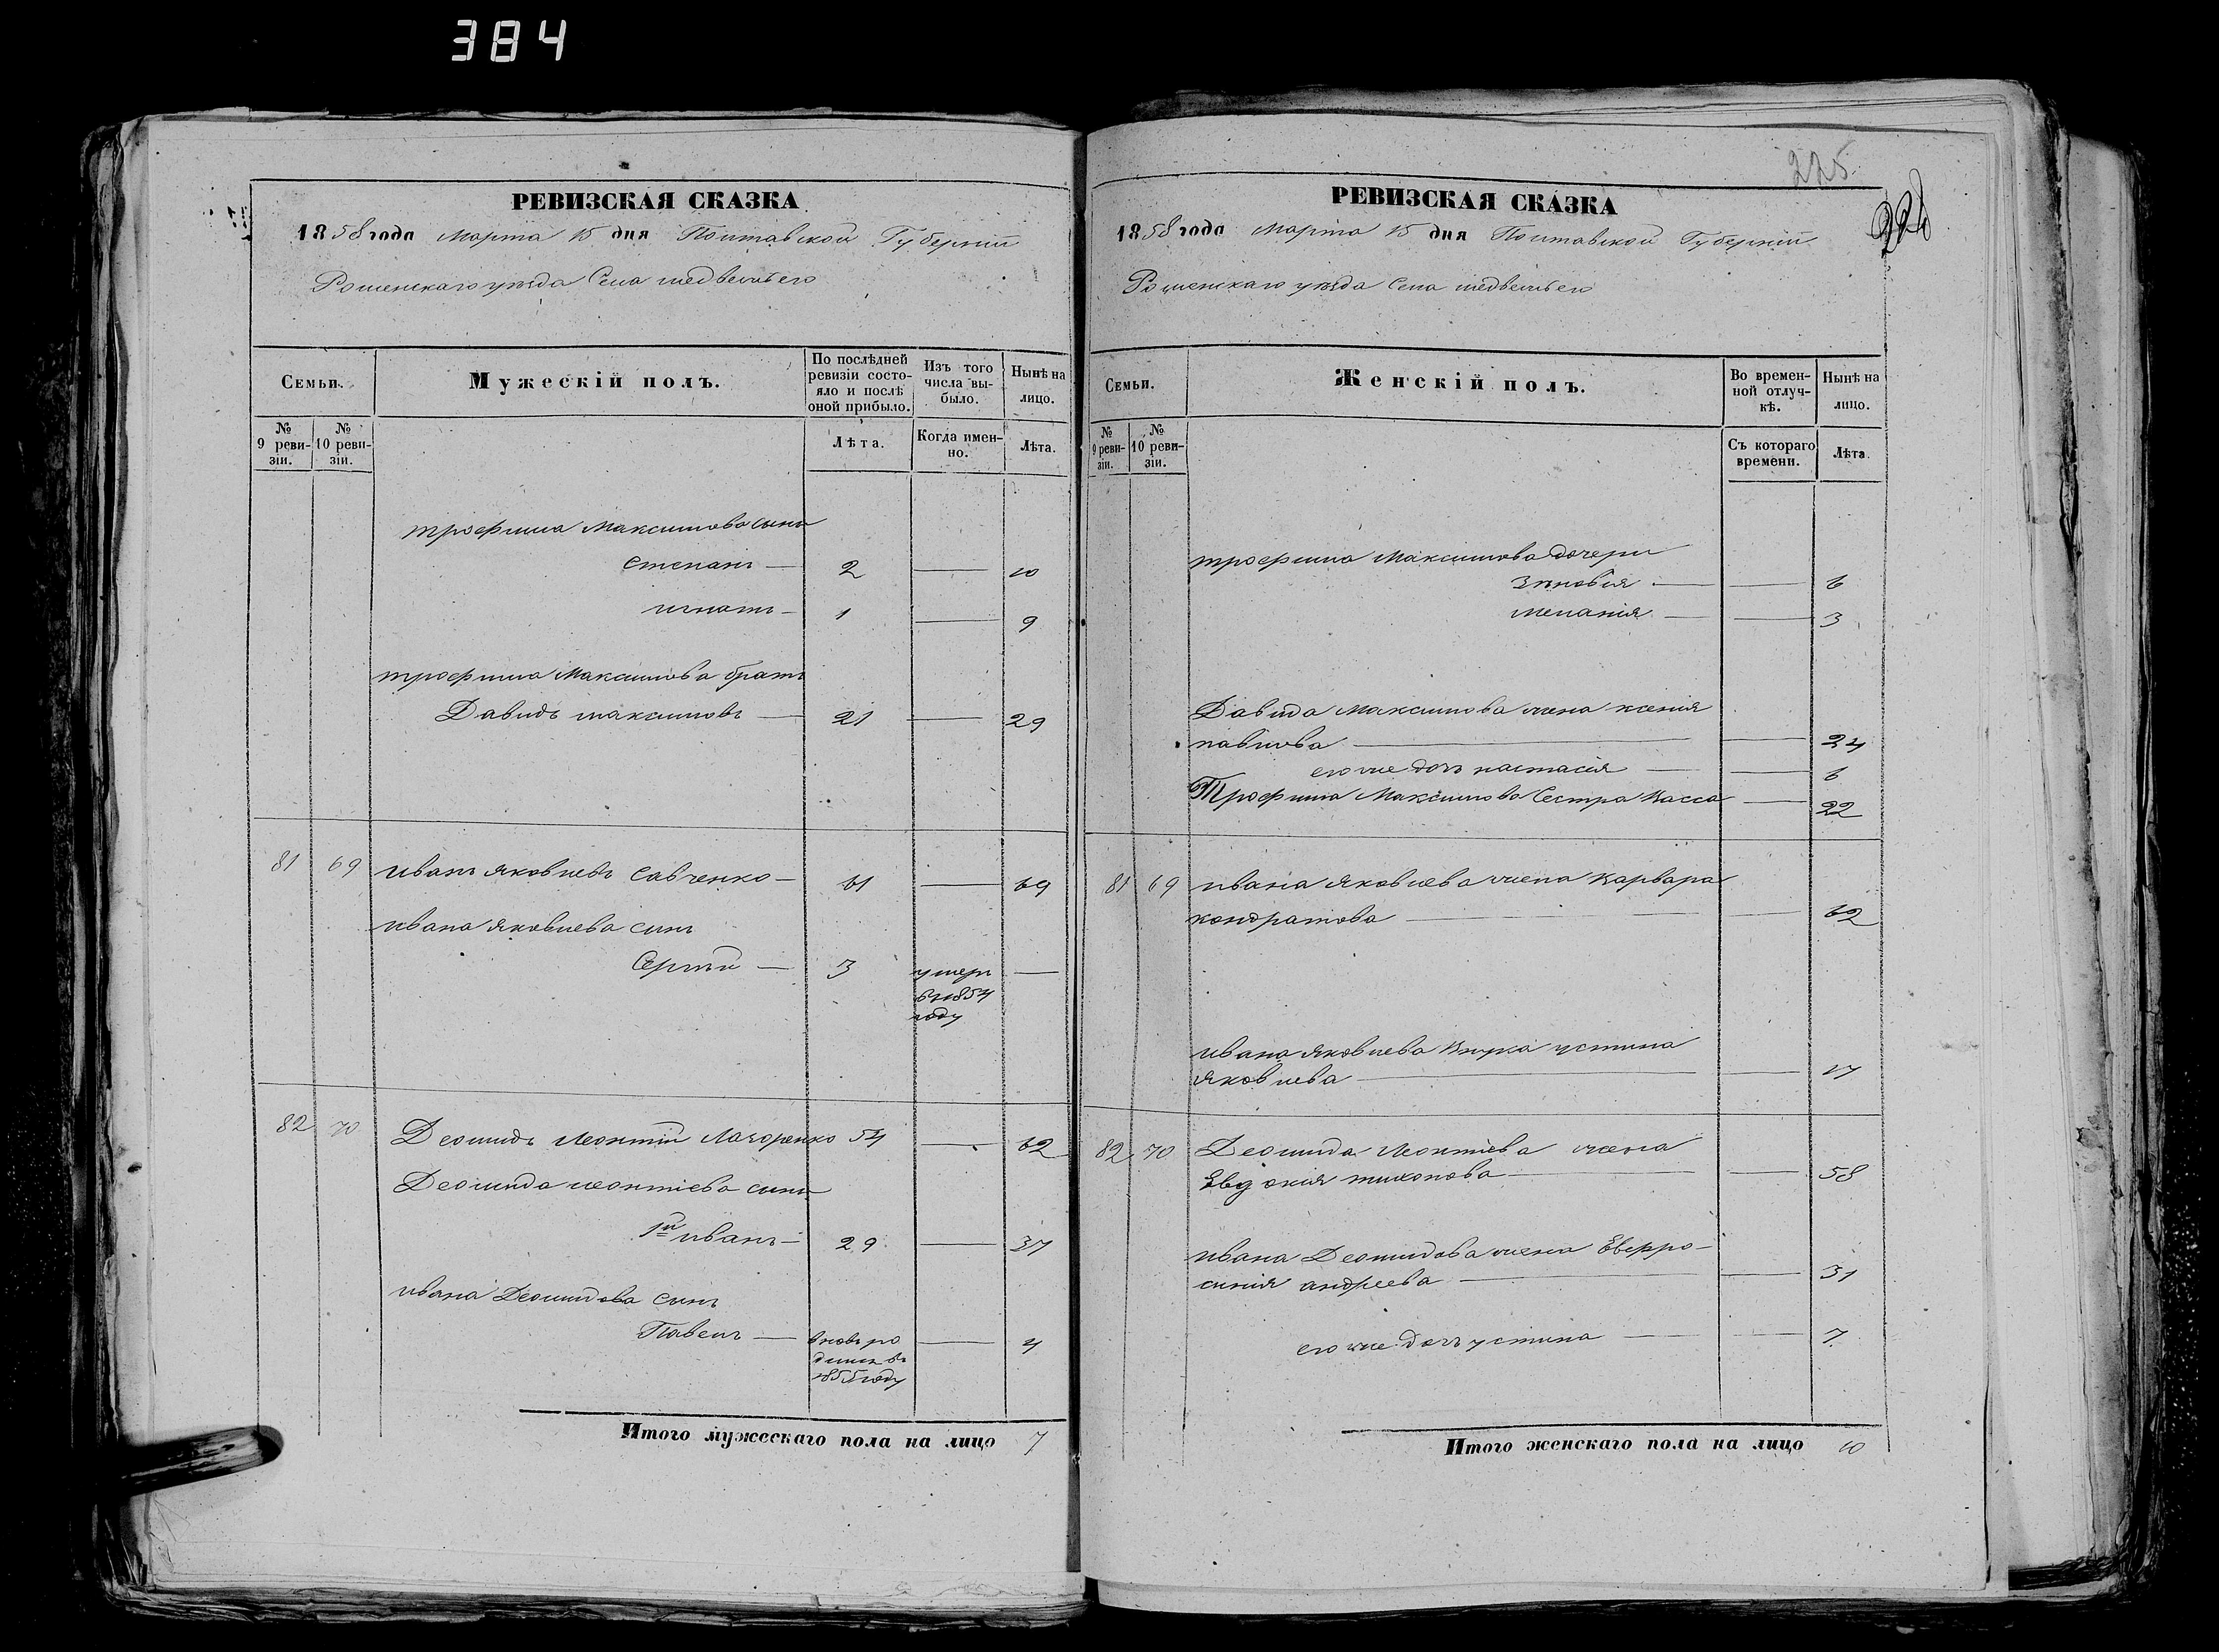 384
РЕВИЗСКАЯ СКАЗКА
1858 года Марта 15 дня Полтавской Губерніи
Роменскаго уѣзда Села Медвежьего
Семьи.
Мужескій полъ.
По послѣдней ревизіи состояло и послѣ оной прибыло.
Изъ того числа выбыло.
Нынѣ на лицо.
№ 9 ревизіи.
№ 10 ревизіи.
Лѣта.
Когда именно.
Лѣта.
трофима Максимова сыны
Степанъ — 2 — 10
игнатъ — 1 — 9
трофима Максимова братъ
Давидъ максимовъ — 21 — 29
81 69 иванъ яковлевъ Савченко — 61 — 69
ивана яковлева сынъ
Сергѣй — 3 умеръ —
въ 1854
году
82 70 Деомидъ Леонтіи Лазоренко 54 — 62
Деомида леонтіева сыны
1й иванъ — 29 — 37
ивана Деомидова сынъ
Павелъ — вновь ро — 4
дился въ
1855 году
Итого мужескаго пола на лицо 7
225
224
РЕВИЗСКАЯ СКАЗКА
1858 года Марта 15 дня Полтавской Губерніи
Роменскаго уѣзда Села медвежьего
Семьи.
Женскій полъ.
Во временной отлучкѣ.
Нынѣ на лицо.
№ 9 ревизіи.
№ 10 ревизіи.
Съ котораго времени.
Лѣта
трофима Максимова дочери
Зѣновія — — 6
меланія — — 3
Давида Максимова жена ксенія
павлова — — 24
его же дочь настасія — — 6
Трофима Максимова Сестра Васса — 22
81 69 ивана яковлева жена варвара
кондратова — — 62
ивана яковлева внука устина
яковлева — — 17
82 70 Деомида Леонтіева жена
Евдокія тихонова — — 58
ивана Деомидова жена Евфро-
синія андреева — — 31
его же дочь устина — — 7
Итого женскаго пола на лицо 10